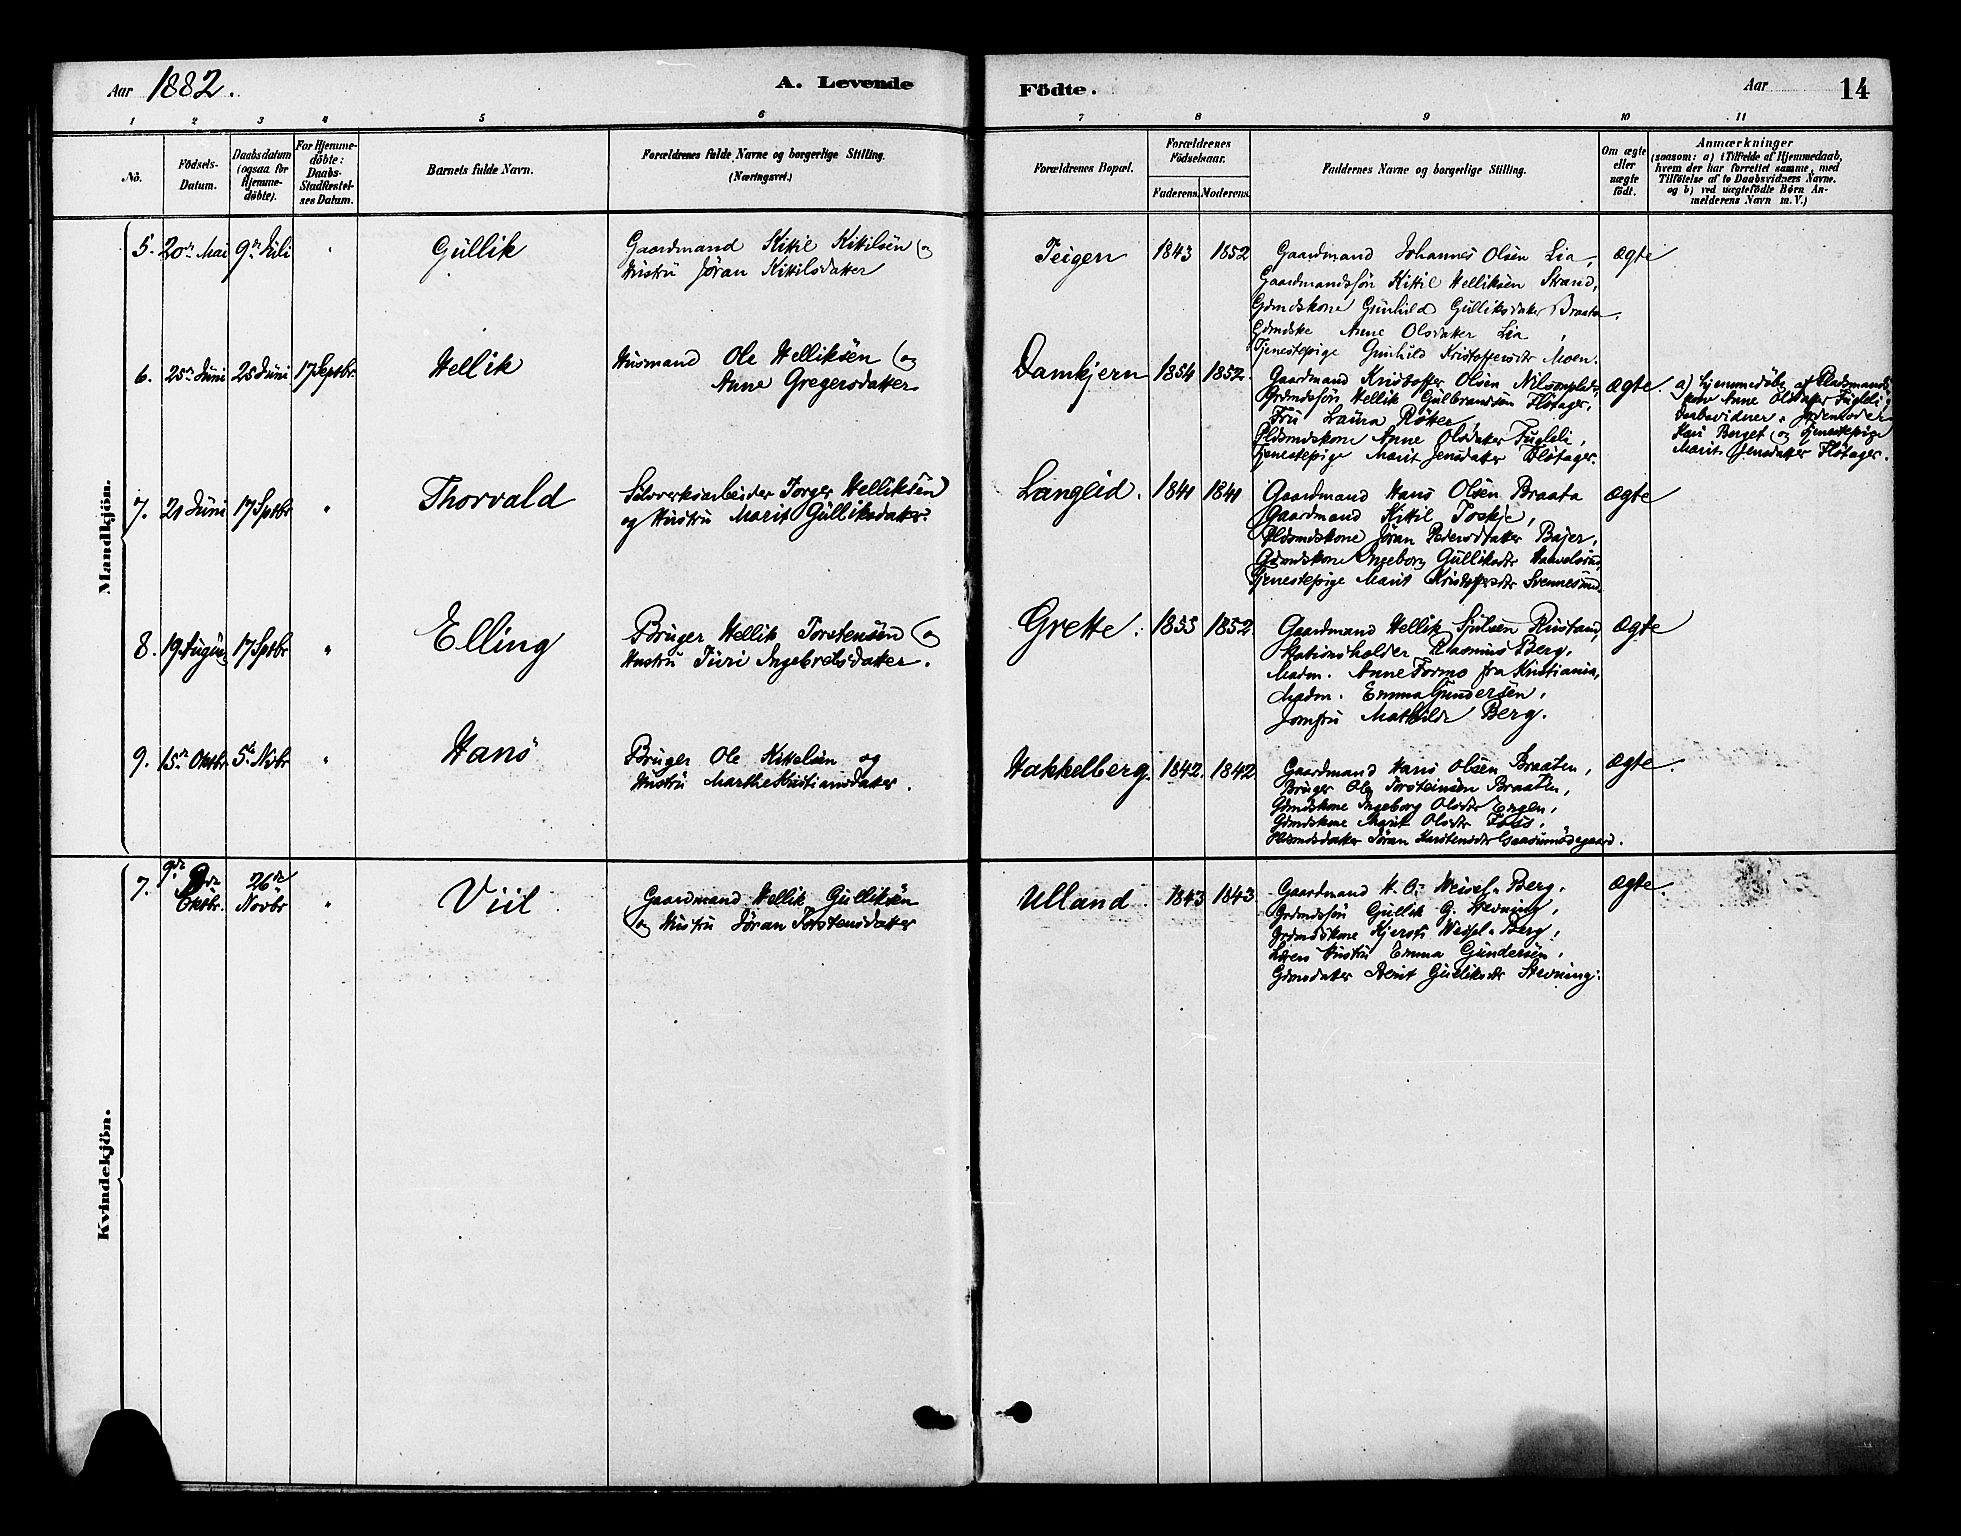 Aar 1882.
A. Levende
Födte.
Aar
14
1 2 3 4 5 6 7 8 9 10 11
No.
Födsels-
Datum.
Daabsdatum
(ogsaa for
Hjemme-
døbte).
For Hjemme-
døbte:
Daabs-
Stadfæstel-
ses Datum.
Barnets fulde Navn.
Forældrenes fulde Navne og borgerlige Stilling.
(Næringsvei.)
Forældrenes Bopæl.
Forældrenes
Födselsaar.
Faderens. Moderens.
Faddernes Navne og borgerlige Stilling.
Om ægte
eller
uægte
født.
Anmærkninger
(saasom: a) i Tilfælde af Hjemmedaab,
hvem der har forrettet samme, med
Tilföielse af to Daabsvidners Navne.
og b) ved uægtefödte Börn An-
melderens Navn m. V.)
Mandkjön.
5. 20de Mai 9de Juli " Gullik
Gaardmand Kittil Kittilsen og
Hustru Jøran Kittilsdatter
Teigen 1843 1852
Gaardmand Johannes Olsen Lia,
Gaardmandssøn Kittil Helliksen Strand,
Grdmdskone Gunhild Gulliksdatter Braata.
Grdmdske Anne Olsdatter Lia,
Tjenestepige Gunhild Kristoffersdtr Moen.
ægte
6. 25de Juni 25 Juni 17 Septbr. Hellik
Husmand Ole Helliksen og
Anne Gregersdatter
Damkjern 1854 1852.
Gaardmand Kristoffer Olsen
Grdmdssøn Hellik Gulbrandsen Fløtager,
Fru Laura
Pldsmdskone Anne Olsdatter Fugleli,
Tjenestepige Marit Jensdatter Fløtager.
ægte.
a) hjemmedøbt af Pladsmands
kone Anne Olsdatter Fuglelie
Daabsvidner: Jordemoder
Kari Berget og Tjenestepige
Marit Jensdatter Fløtager.
7. 21 Juni 17 Sptbr " Thorvald
Sølvverksarbeider Torger Helliksen
og Hustru Marit Gulliksdatter.
Langlid. 1841 1841
Gaardmand Hans Olsen Braata
Gaardmand Kittil Toskje,
Pldsmdskone Jøran Pedersdatter Bajer,
Grdmdskone Ingeborg Gulliksdtr
Tjenestepige Marit Kristoffersdtr Svennesund.
ægte
8. 19 August 17 Sptbr " Elling
Bruger Hellik Torstensen og
Hustru Turi Ingebretsdatter.
Grette. 1855 1852
Gaardmand Hellik Sjulsen Rustand,
Stationsholder Rasmus Berg.
Madm. Anne Formo fra Kristiania,
Madm. Emma Gundersen,
Jomfru Mathilde Berg.
ægte
9. 15de Oktbr. 5te Novbr " Hans
Bruger Ole Kittilsen og
Hustru Marthe Kristiansdatter.
Hakkelberg. 1842. 1842
Gaardmand Hans Olsen Braaten,
Bruger Ole Torsteinsen Braaten,
Grdmdskone Ingeborg Olsdtr Engen,
Grdmdskone Marit Olsdtr Foss,
Pldsmdsdatter Jøran
ægte.
Kvindekjön.
7. 9de
Oktbr. 26de
Novbr " Viil
Gaardmand Hellik Gulliksen
og Hustru Jøran Torstensdatter
Ulland. 1843 1843
Gaardmand H. G. Berg,
Grdmdssøn Gullik G. Stevning,
Grdmdskone Kjersti Berg,
Lærers Hustru Emma Gundersen,
Grdmdatter Berit Gulliksdtr Stevning.
ægte.